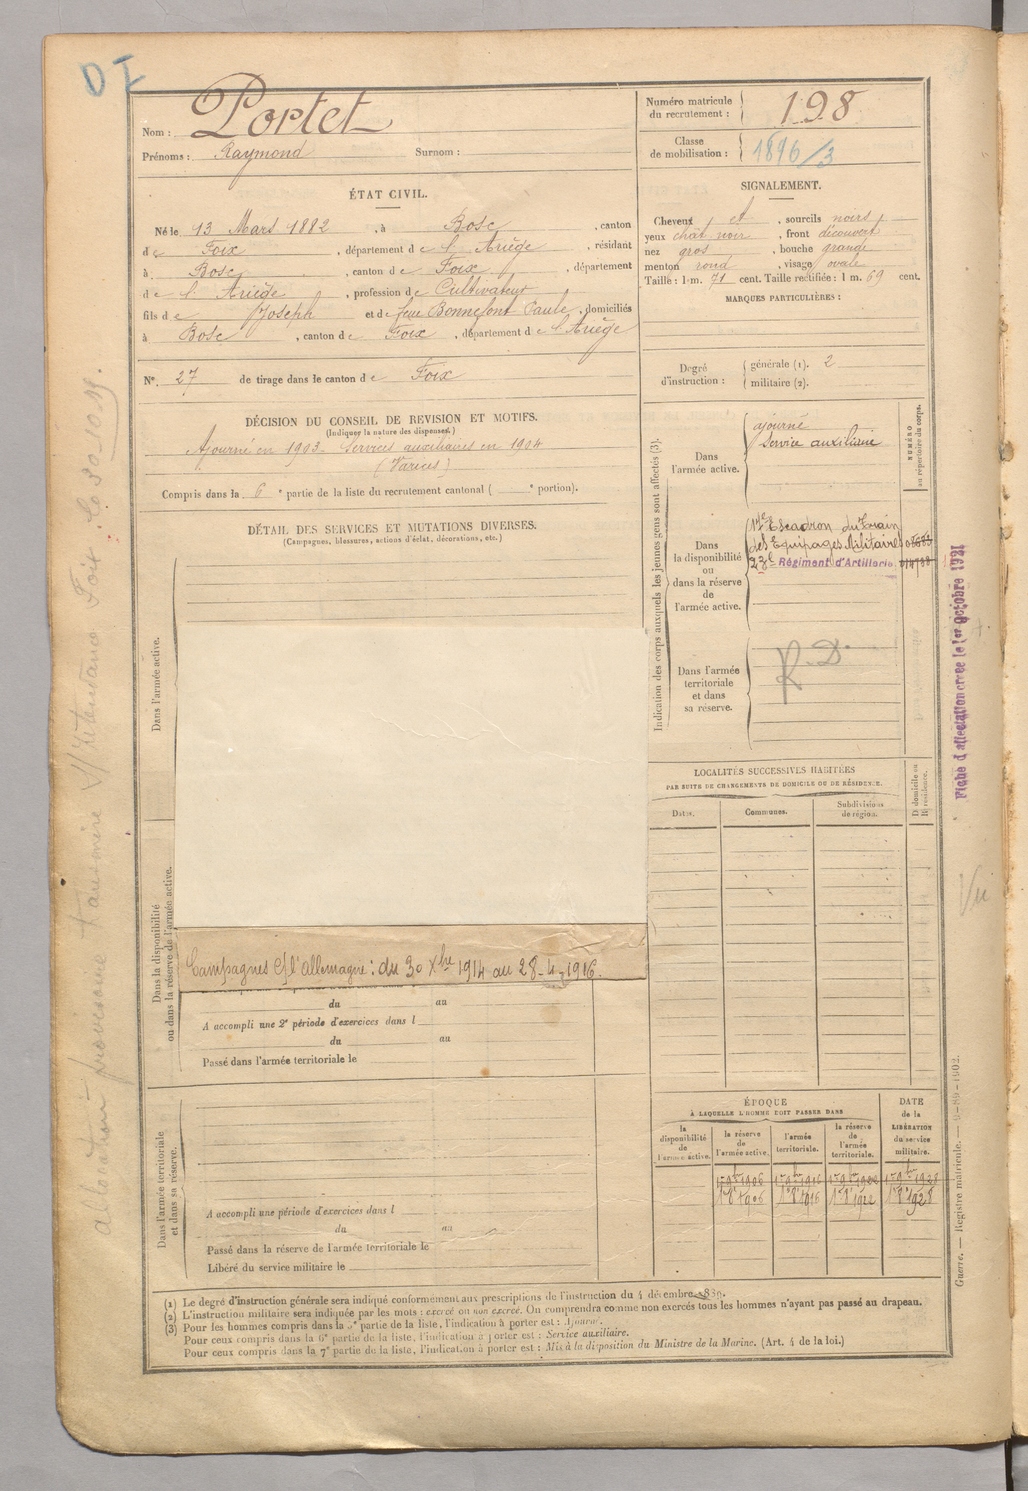 D I
Nom : Portet
Prénoms : Raymond Surnom :
Numéro matricule du recrutement : 198
Classe de mobilisation : 1896/3
ÉTAT CIVIL.
Né le 13 Mars 1882, à Bosc, canton
de Foix, département de l'Ariège, résidant
à Bosc, canton de Foix, département
de l'Ariège, profession de Cultivateur
fils de Joseph et de feue Bonnefont Paule, domiciliés
à Bosc, canton de Foix, département de l'Ariège
N°. 27 de tirage dans le canton de Foix
SIGNALEMENT.
Cheveux et, sourcils noirs
yeux chat. noir, front découvert
nez gros, bouche grande
menton rond, visage ovale
Taille : 1 m. 71 cent. Taille rectifiée : 1 m. 69 cent.
MARQUES PARTICULIÈRES :
Degré d'instruction : générale (1). 2
militaire (2).
DÉCISION DU CONSEIL DE REVISION ET MOTIFS.
(Indiquer la nature des dispenses.)
Ajourné en 1903. Services auxiliaires en 1904
(Varices)
Compris dans la 6e partie de la liste du recrutement cantonal ( e portion).
DÉTAIL DES SERVICES ET MUTATIONS DIVERSES.
(Campagnes, blessures, actions d'éclat, décorations, etc.)
Dans l'armée active.
Dans la disponibilité
ou dans la réserve de l'armée active.
Campagnes c/ l'allemagne : du 30 Xbre 1914 au 28-4-1916.
du au
A accompli une 2e période d'exercices dans l
du au
Passé dans l'armée territoriale le
Dans l'armée territoriale
et dans sa réserve.
A accompli une période d'exercices dans l
du au
Passé dans la réserve de l'armée territoriale le
Libéré du service militaire le
Indication des corps auxquels les jeunes gens sont affectés (3).
NUMÉRO
au répertoire du corps.
Dans
l'armée active.
ajourné
Service auxiliaire
Dans
la disponibilité
ou
dans la réserve
de
l'armée active.
17e Escadron du Train
des Equipages Militaires
23e Régiment d'Artillerie.
Dans l'armée
territoriale
et dans
sa réserve.
R. D.
LOCALITÉS SUCCESSIVES HABITÉES
PAR SUITE DE CHANGEMENTS DE DOMICILE OU DE RÉSIDENCE.
Dates.
Communes.
Subdivisions
de région.
D domicile ou
R résidence.
ÉPOQUE
À LAQUELLE L'HOMME DOIT PASSER DANS
la disponibilité de l'armée active.
la réserve de l'armée active.
l'armée territoriale.
la réserve de l'armée territoriale.
DATE de la LIBÉRATION du service militaire.
1er 9bre 1906 1er 9bre 1916 1er 9bre 1922 1er 9bre 1928
1er 8bre 1906 1er 8bre 1916 1er 8bre 1922 1er 8bre 1928
(1) Le degré d'instruction générale sera indiqué conformément aux prescriptions de l'instruction du 4 décembre 1889.
(2) L'instruction militaire sera indiquée par les mots : exercé ou non exercé. On comprendra comme non exercés tous les hommes n'ayant pas passé au drapeau.
(3) Pour les hommes compris dans la 5e partie de la liste, l'indication à porter est : Ajourné.
Pour ceux compris dans la 6e partie de la liste, l'indication à porter est : Service auxiliaire.
Pour ceux compris dans la 7e partie de la liste, l'indication à porter est : Mis à la disposition du Ministre de la Marine. (Art. 4 de la loi.)
allocation provisoire S/Intendance Foix le 30-10-19.
Fiche d'affectation créée le 1er Octobre 1921
Vu
Guerre. — Registre matricule. — 1902.